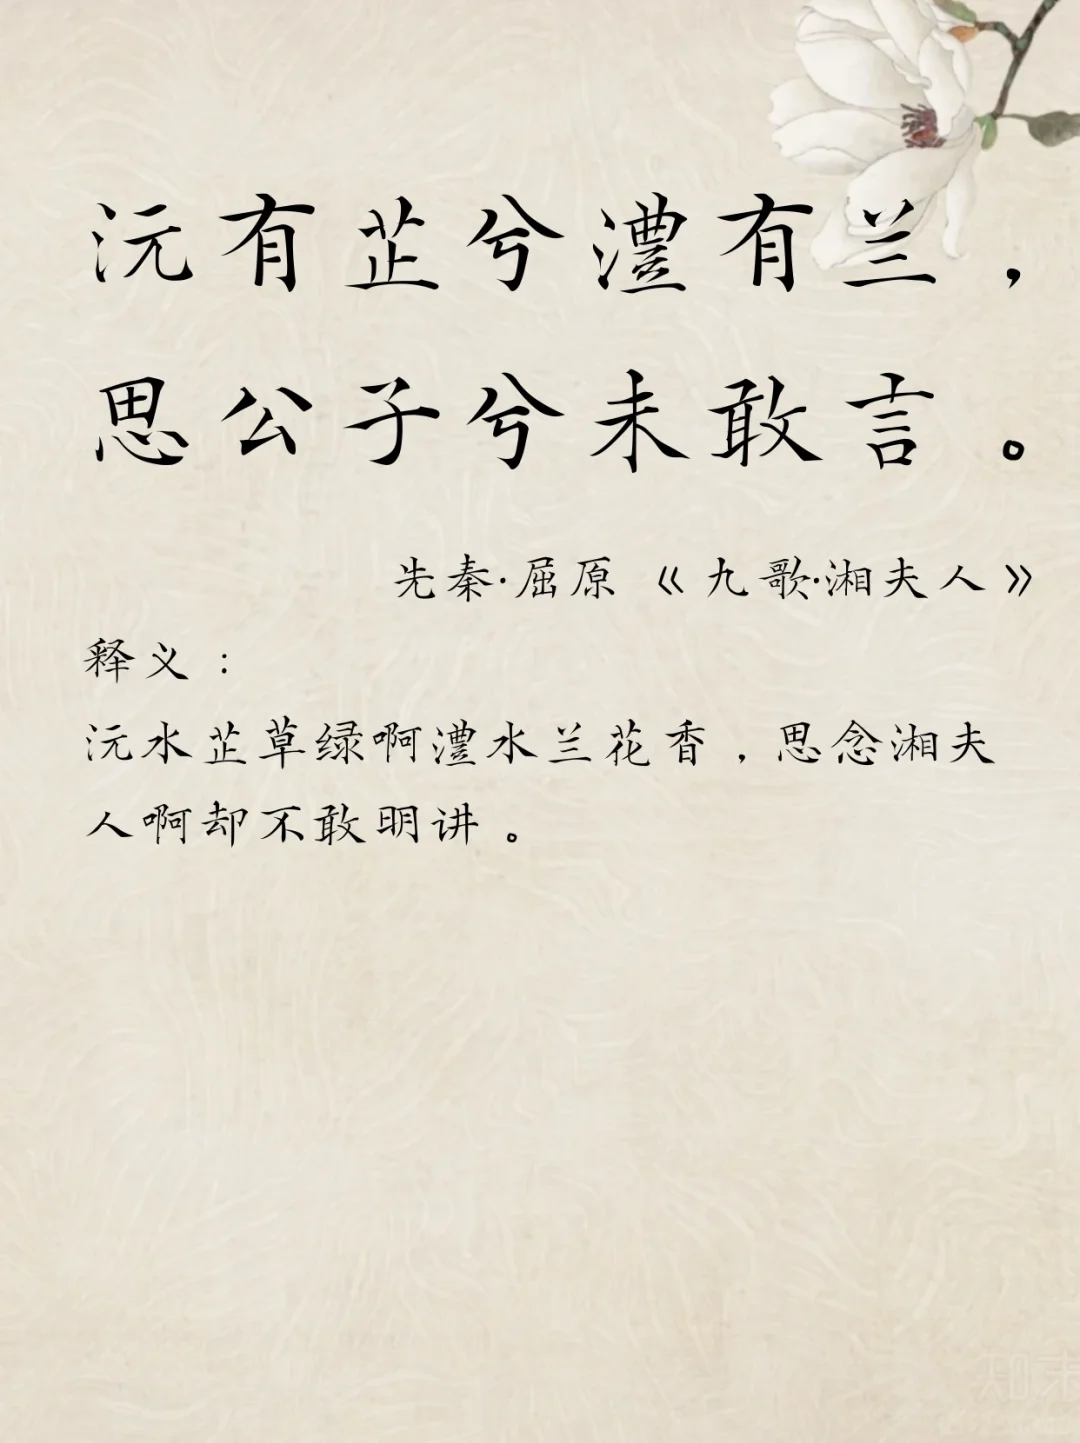 沅有芷兮澧有兰，
思公子兮未敢言。
先秦·屈原《九歌·湘夫人》
释义：
沅水芷草绿啊澧水兰花香，思念湘夫
人啊却不敢明讲。
知末